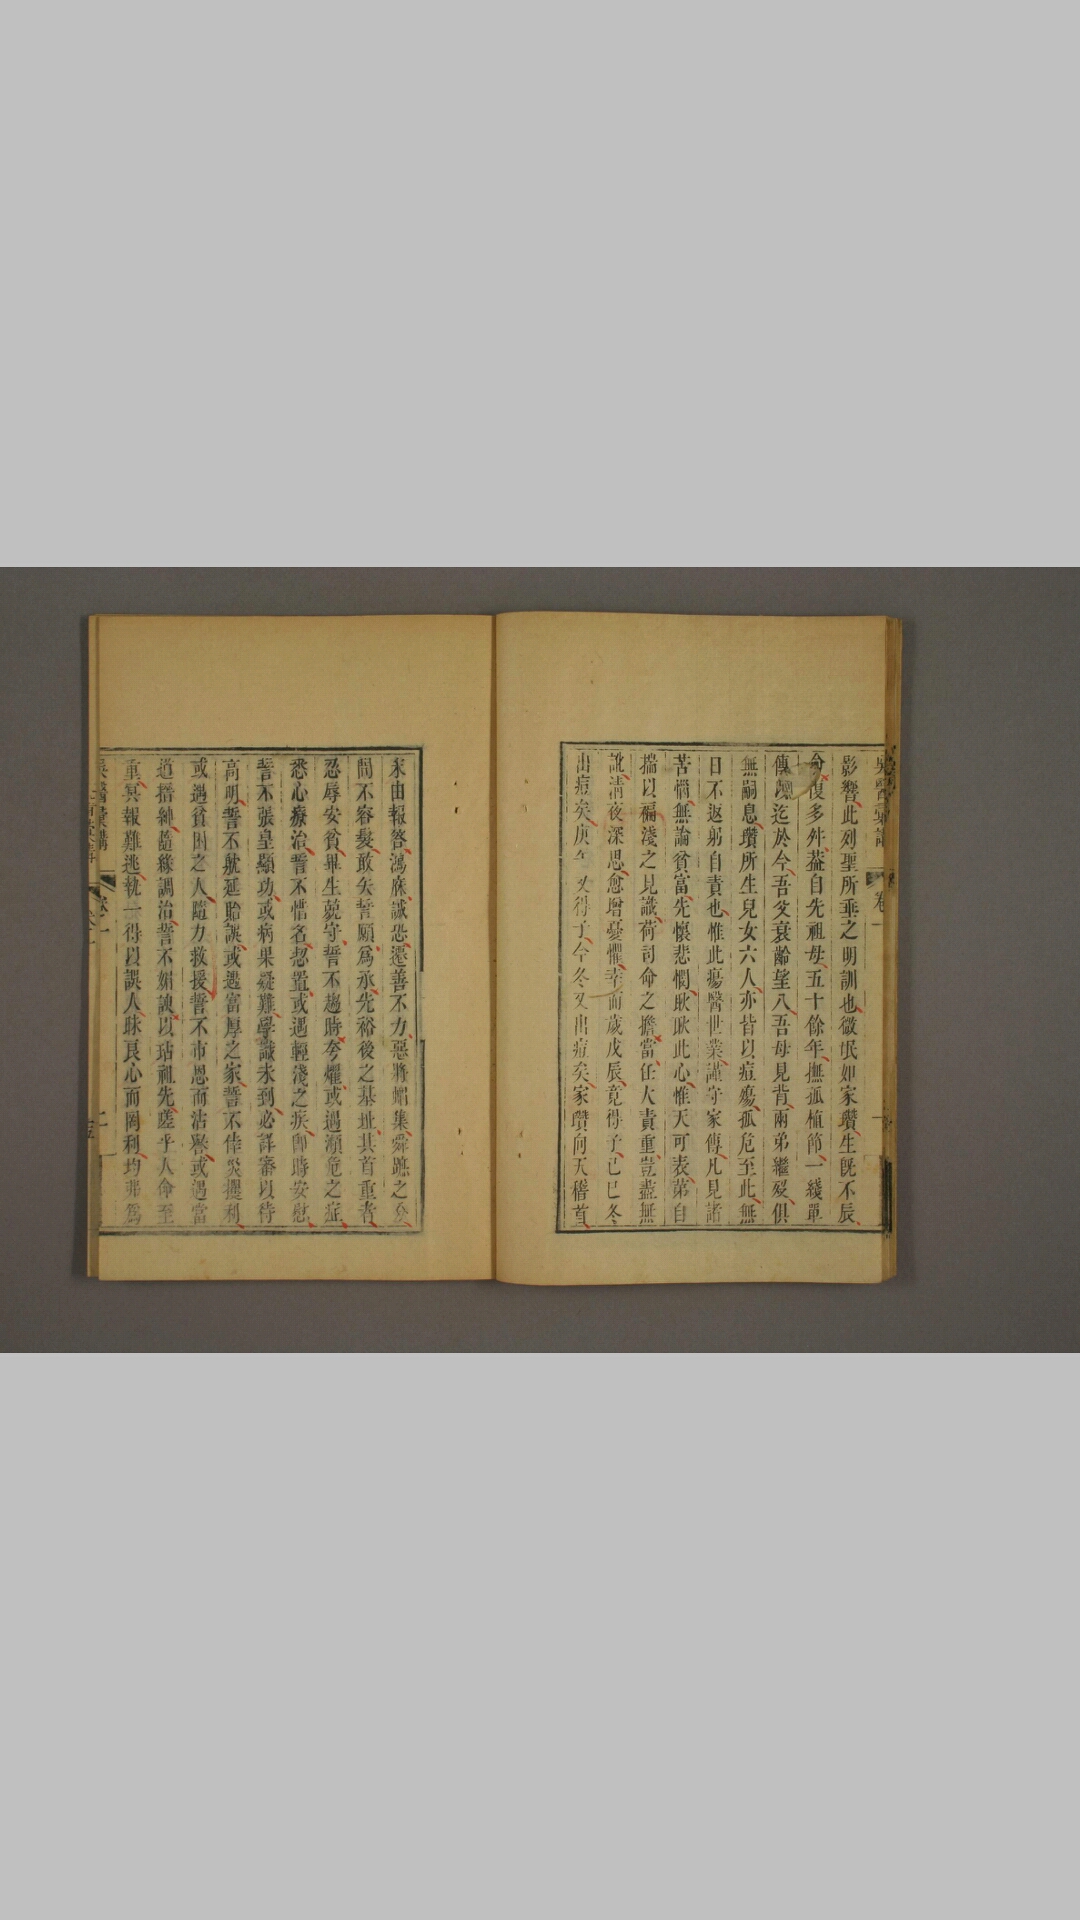 影響此列聖所垂之明訓也微氓如家瓚生既不辰
復多舛葢自先祖母五十餘年撫孤植節一綫單
傳迄於今吾父衰齡望八吾母見背兩弟繼歿俱
無嗣息瓚所生兒女六人亦皆以痘殤孤危至此無
日不返躬自責也惟此瘍醫世業謹守家傳凡見諸
苦惱無論貧富先懷悲憫耿耿此心惟天可表第自
揣以褊淺之見識荷司命之擔當任大責重豈盡無
訛清夜深思愈增憂懼幸而歲戊辰竟得子己巳冬
出痘矣庚午又得子今冬又出痘矣家瓚向天稽首
末由報答鴻庥誠恐遷善不力惡將媢集舜蹠之分
間不容髮敢矢誓願爲承先裕後之基址其首重者
忍辱安貧畢生兢守誓不趨時夸燿或遇瀕危之症
悉心療治誓不惜名恝置或遇輕淺之疾卽時安慰
誓不張皇顯功或病果疑難學識未到必詳審以待
高明誓不躭延貽誤或遇富厚之家誓不倖災攫利
或遇貧困之人隨力救援誓不市恩而沽譽或遇當
道搢紳隨緣調治誓不媚諛以玷祖先蹉乎人命至
重冥報難逃執一得以誤人昧良心而罔利均非爲
吳醫彙講
卷一